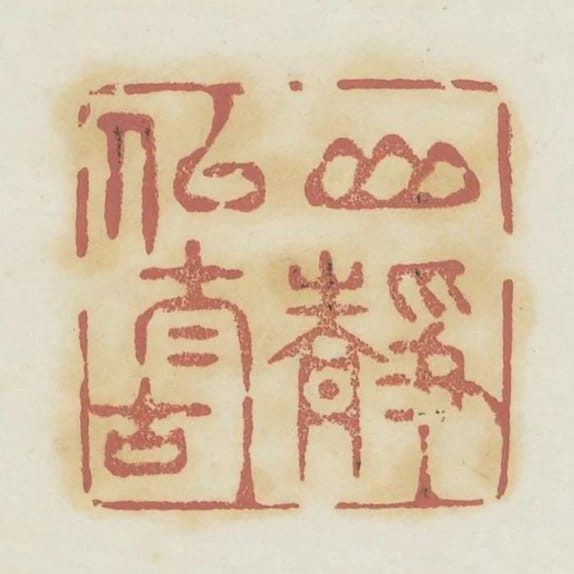 山靜
似太古